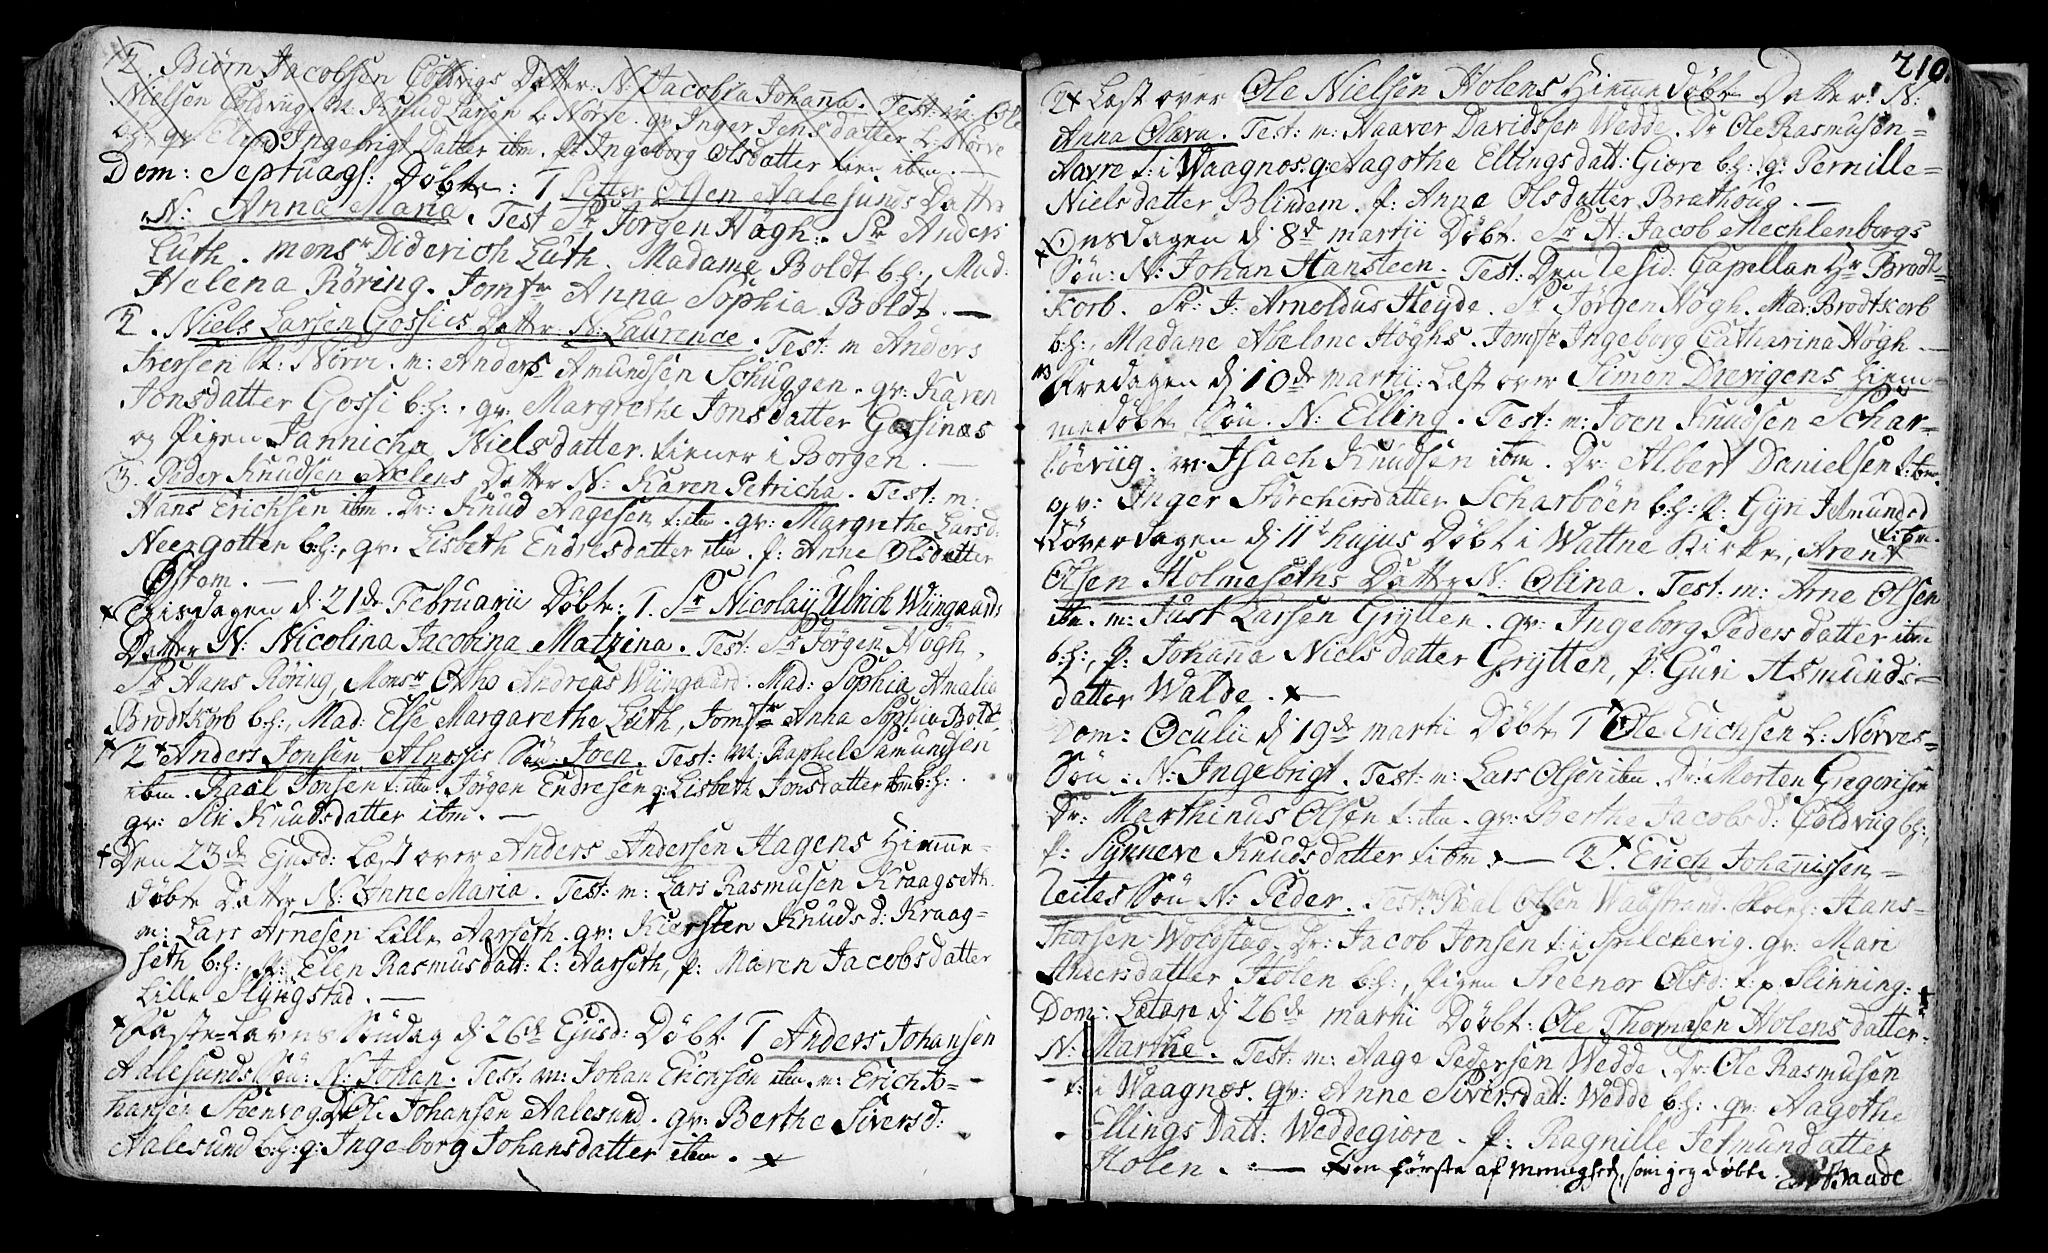 2. Biørn Jacobsen Coldvigs Datter N: Jacobia Johana. Test: m: Ole
Nielsen Coldviig. M. Knud Larsen l: Nørve. gv: Inger Jensdatter l: Nørve
b:h: gv Elen Ingebrigt Datter itm. p: Ingeborg Olsdatter tien: itm. —
Dom: Septuags: Døbt: 1 Petter Olsen Aalesunds Datter
N: Anna Maria. Test Sr Jørgen Høgh. Sr Anders
Luth. Monsr Diderich Luth. Madame Boldt b:h:, Mad:
Helena Röring. Jomfr Anna Sophia Boldt. —
2. Niels Larsen Gossiis Datter N: Laurence. Test: m Anders
Iversen l: Nörve. m: Anders Amundsen Schuggen. gv: Karen
Jonsdatter Gossi b:h:. gv: Margrethe Jonsdatter Gossines
og Pigen Jannicha Nielsdatter tiener i Borgen. —
3. Peder Knudsen Axlens Datter N: Karen Petricha. Test: m:
Hans Erichsen itm. Dr: Knud Aagesen t: itm. gv: Margrethe Larsd:
Neergotten b:h:, gv. Lisbeth Endresdatter itm. p: Anne Olsdatter
Østom. —
Tiisdagen d: 21de Februarii Døbt: 1. Sr Nicolaij Ulrich Wiingaards
Datter N: Nicolina Jacobina Matzina. Test: Sr Jørgen Høgh,
Sr Hans Röring, Monsr Otho Andreas Wiingaard. Mad: Sophia Amalia
Brodtkorb b:h:, Mad: Else Margarethe Luth, Jomfr Anna Sophia Boldt.
2 Anders Jonsen Alnæssis Søn: Joen. Test: M: Raphel Samundsen
itm. Raal Jonsen t: itm Jörgen Endresen p: Lisbeth Jonsdatter itm b:h:
gv: Siri Knudsdatter itm. —
Den 23de Ejusd: Læst over Anders Andersen Hagens Hiemme-
døbte Datter N: Anne Maria. Test: m: Lars Rasmusen Kraagseth.
m: Lars Arnesen Lille Aarseth. gv: Kiersten Knudsd: Kraag-
seth b:h: p: Elen Rasmusdatt: l: Aarseth, p: Maren Jacobsdatter
Lille Slyngstad. —
Faste-Lavns Söndag d: 26de Ejusd: Døbt 1 Anders Johansen
Aalesunds Søn: N: Johan. Test. m: Johan Erichsen itm. m: Erich Jo-
hansen Steenvog. Dr Ole Johansen Aalesund. gv: Berthe Siversd:
Aalesund b:h: p: Ingeborg Johansdatter itm.
210.
2 Læst over Ole Nielsen Holens Hiemme Døbte Datter N:
Anna Olava. Test: m: Naaver Davidssen Wedde. Dr Ole Rasmusøn
Aavre t: i Waagnos. g: Aagothe Ellingsdatt: Giøre b:h: g: Pernille
Nielsdatter Blindem. p: Anne Olsdatter Brathoug. —
Onsdagen d: 8de Martii Døbt. Sr H: Jacob Mechlenborgs
Søn: N: Johan Hansteen. Test: Den resid: Capellan Hr Brodt-
korb. Sr: J: Arnoldus Heyde. Sr Jørgen Høgh. Mad: Brodtkorb
b:h:, Madame Abelone Höghs. Jomfr Ingeborg Catharina Høgh. —
Fredagen d: 10de Martii: Læst over Simon Drevigens hiem-
medøbte Søn. N: Elling. Test: m: Joen Knudsen Schar-
bøevig. m: Isach Knudsen itm. Dr: Albert Danielsen t: itm.
gv: Inger Störchersdatter Scharböen b:h: p: Gyri Jetmundsd
t: itm.
Löverdagen d: 11te hujus Døbt i Wattne Kirke, Arent
Olsen Holmeseths Datter N: Olina. Test: m: Arne Olsen
itm. m: Just Larsen Grytten. gv: Ingeborg Pedersdatter itm
b:h:, p: Johana Nielsdatter Grytten, p: Guri Asmunds-
datter Walde.
Dom: Oculi d: 19de Martii Døbt 1 Ole Erichsen l: Nörves
Søn: N: Ingebrigt. Test: m: Lars Olsen itm. Dr: Morten Gregorisen
Dr: Marthinus Olsen t: itm. gv: Berthe Jacobsd: Coldviig b:h:,
p: Synneve Knudsdatter t: itm. — 2. Erich Johanissen
Zeites Søn N: Peder. Test: m Paal Olsen Waastrand. Skoleh: Hans
Thorsen Woldstad. Dr: Jacob Jonsen t: i Spilchevig. gv: Mari
Andersdatter Holen b:h:, Pigen Treenor Olsd: t: p Slinning.
Dom: Lætare d: 26de Martii Døbt: Ole Thomasen Holens datter.
N: Marthe. Test: m: Aage Pedersen Wedde. Dr: Ole Rasmusen
t: i Waagnos. gv: Anne Siversdatt: Wedde b:h:. gv: Aagothe
Ellings Datt: Weddegiøre. p: Ragnille Jetmundatter
Holen. — Den første af Menighed, som jeg døbte.